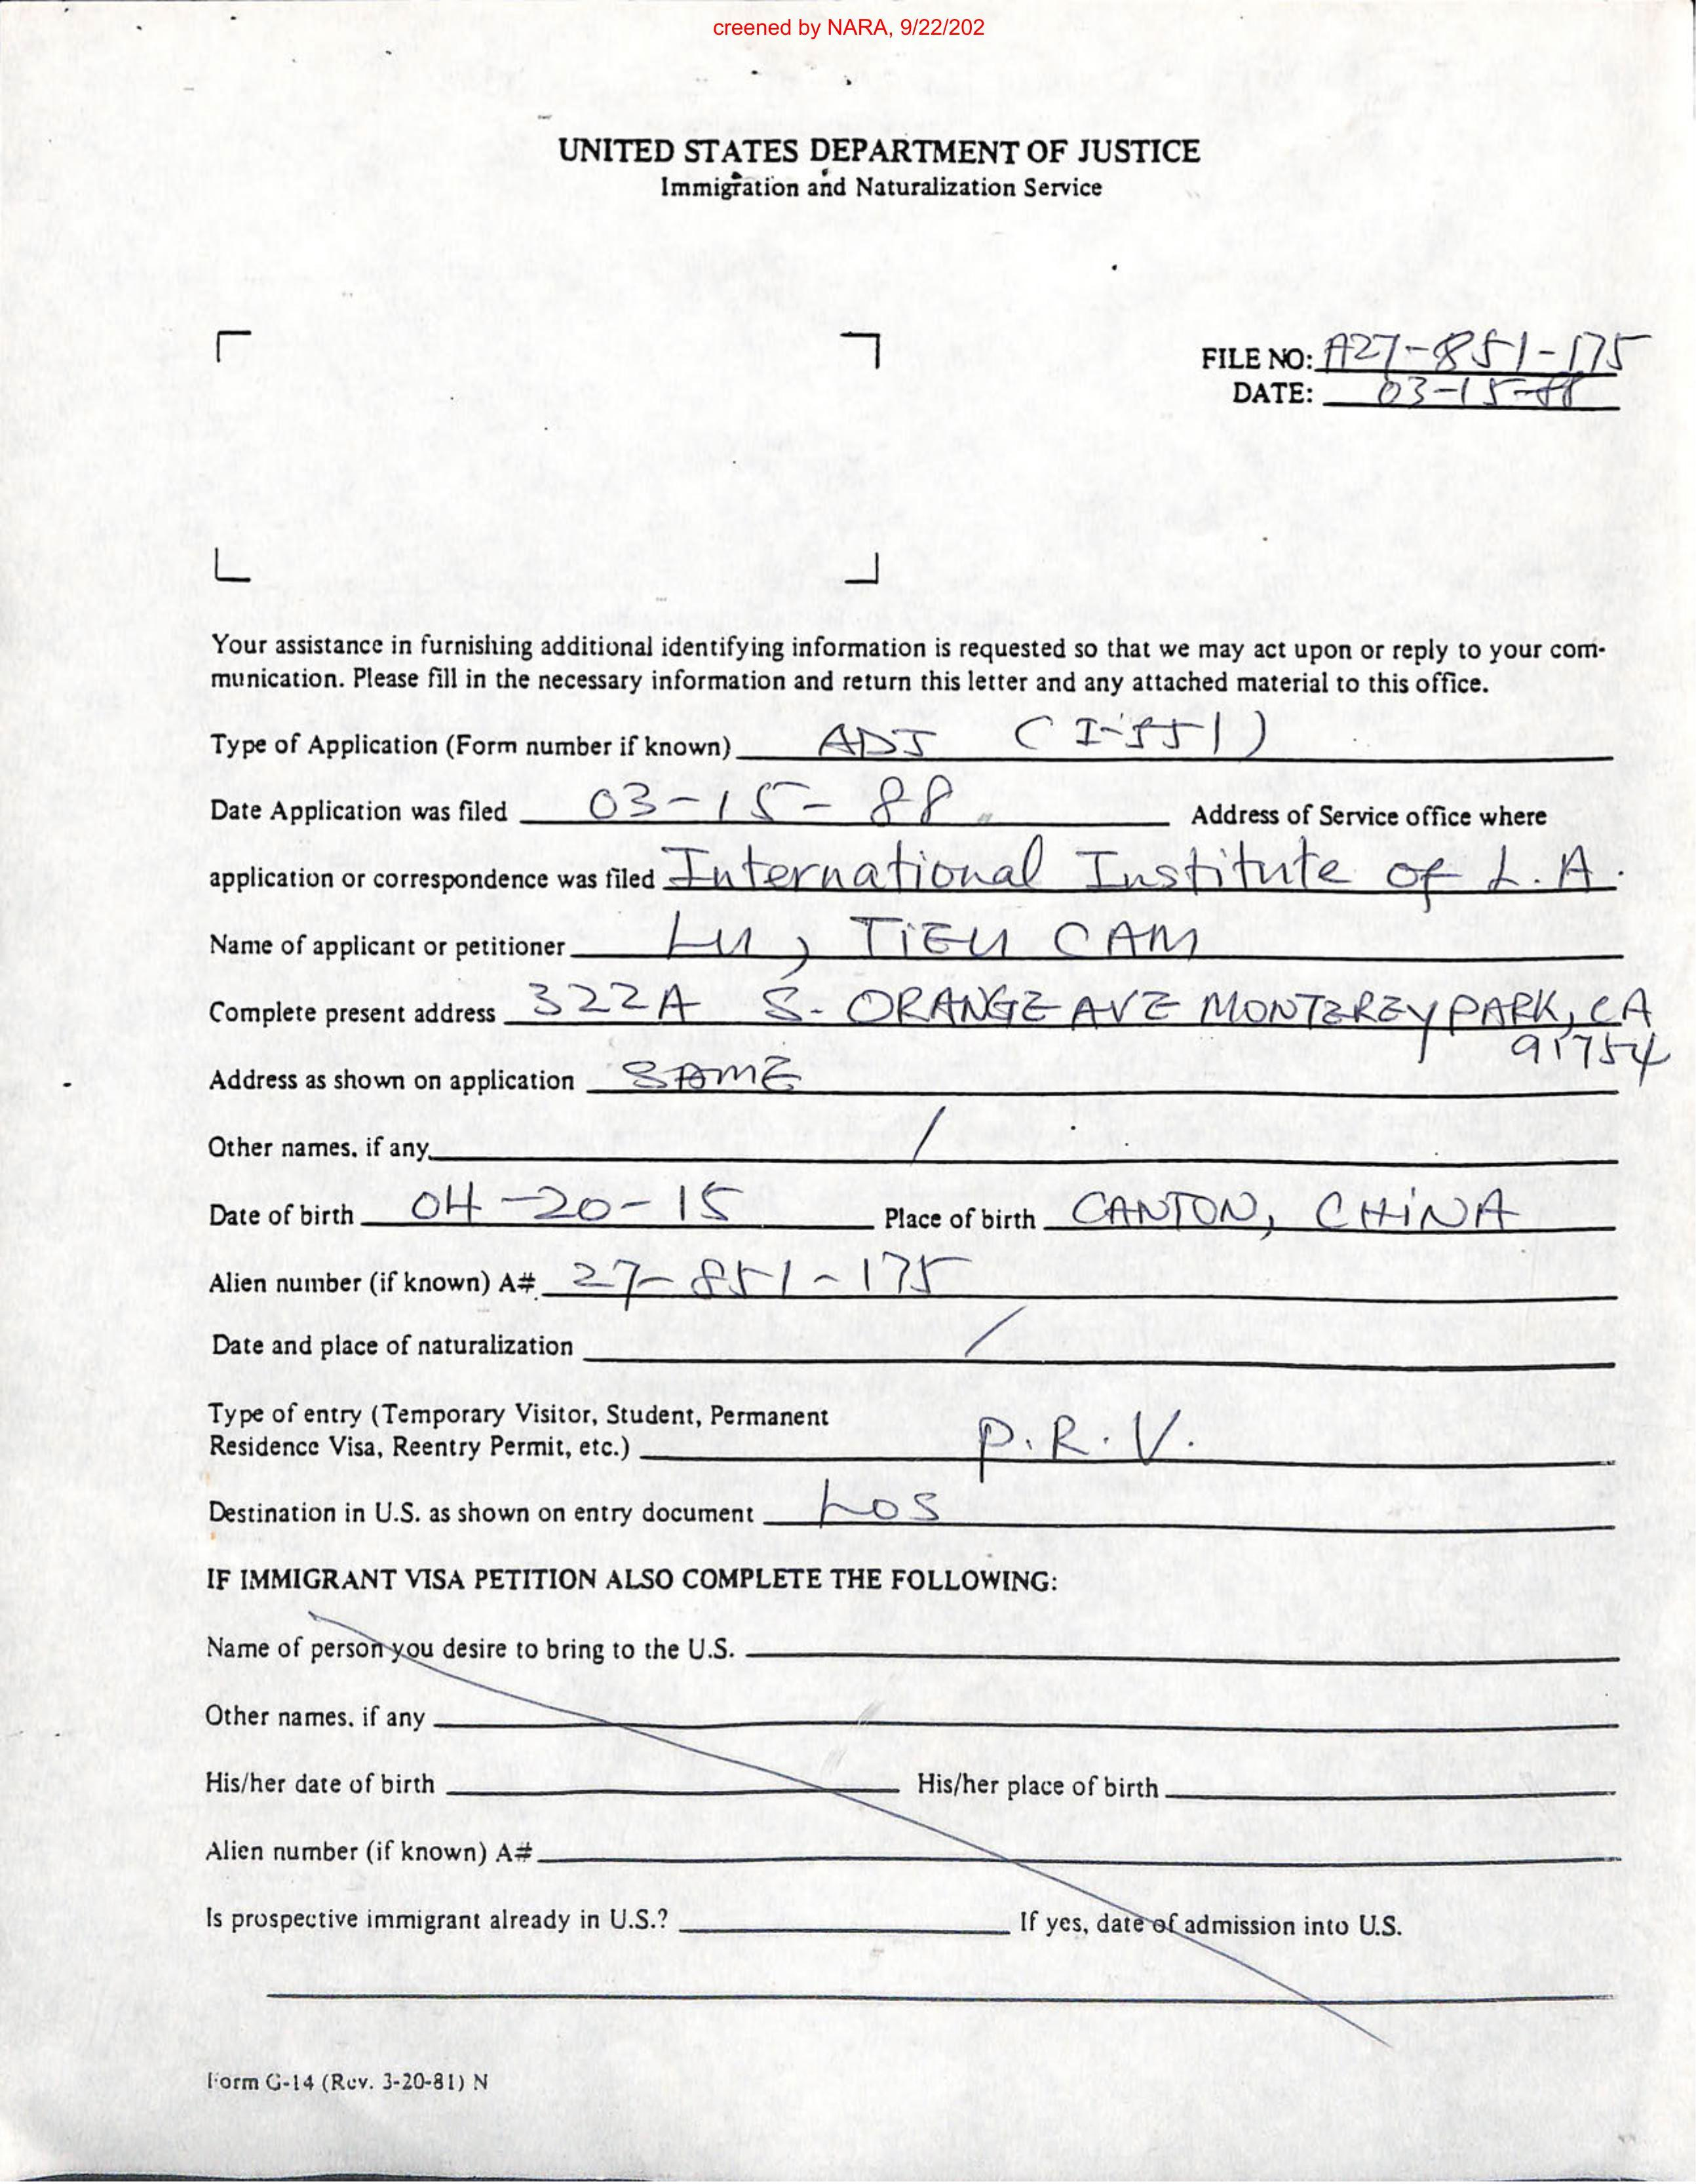 creened by NARA, 9/22/202
UNITED STATES DEPARTMENT OF JUSTICE
Immigration and Naturalization Service
FILE NO: A27-851-175
DATE: 03-15-88
Your assistance in furnishing additional identifying information is requested so that we may act upon or reply to your com-
munication. Please fill in the necessary information and return this letter and any attached material to this office.
Type of Application (Form number if known) ADJ (I-551)
Date Application was filed 03-15-88 Address of Service office where
application or correspondence was filed International Institute of L.A.
Name of applicant or petitioner LU, TIEU CAM
Complete present address 322A S. ORANGE AVE MONTEREY PARK, CA
91754
Address as shown on application SAME
Other names, if any /
Date of birth 04-20-15 Place of birth CANTON, CHINA
Alien number (if known) A# 27-851-175
Date and place of naturalization /
Type of entry (Temporary Visitor, Student, Permanent
Residence Visa, Reentry Permit, etc.) P.R.V.
Destination in U.S. as shown on entry document LOS
IF IMMIGRANT VISA PETITION ALSO COMPLETE THE FOLLOWING:
Name of person you desire to bring to the U.S.
Other names, if any
His/her date of birth His/her place of birth
Alien number (if known) A#
Is prospective immigrant already in U.S.? If yes, date of admission into U.S.
Form G-14 (Rev. 3-20-81) N